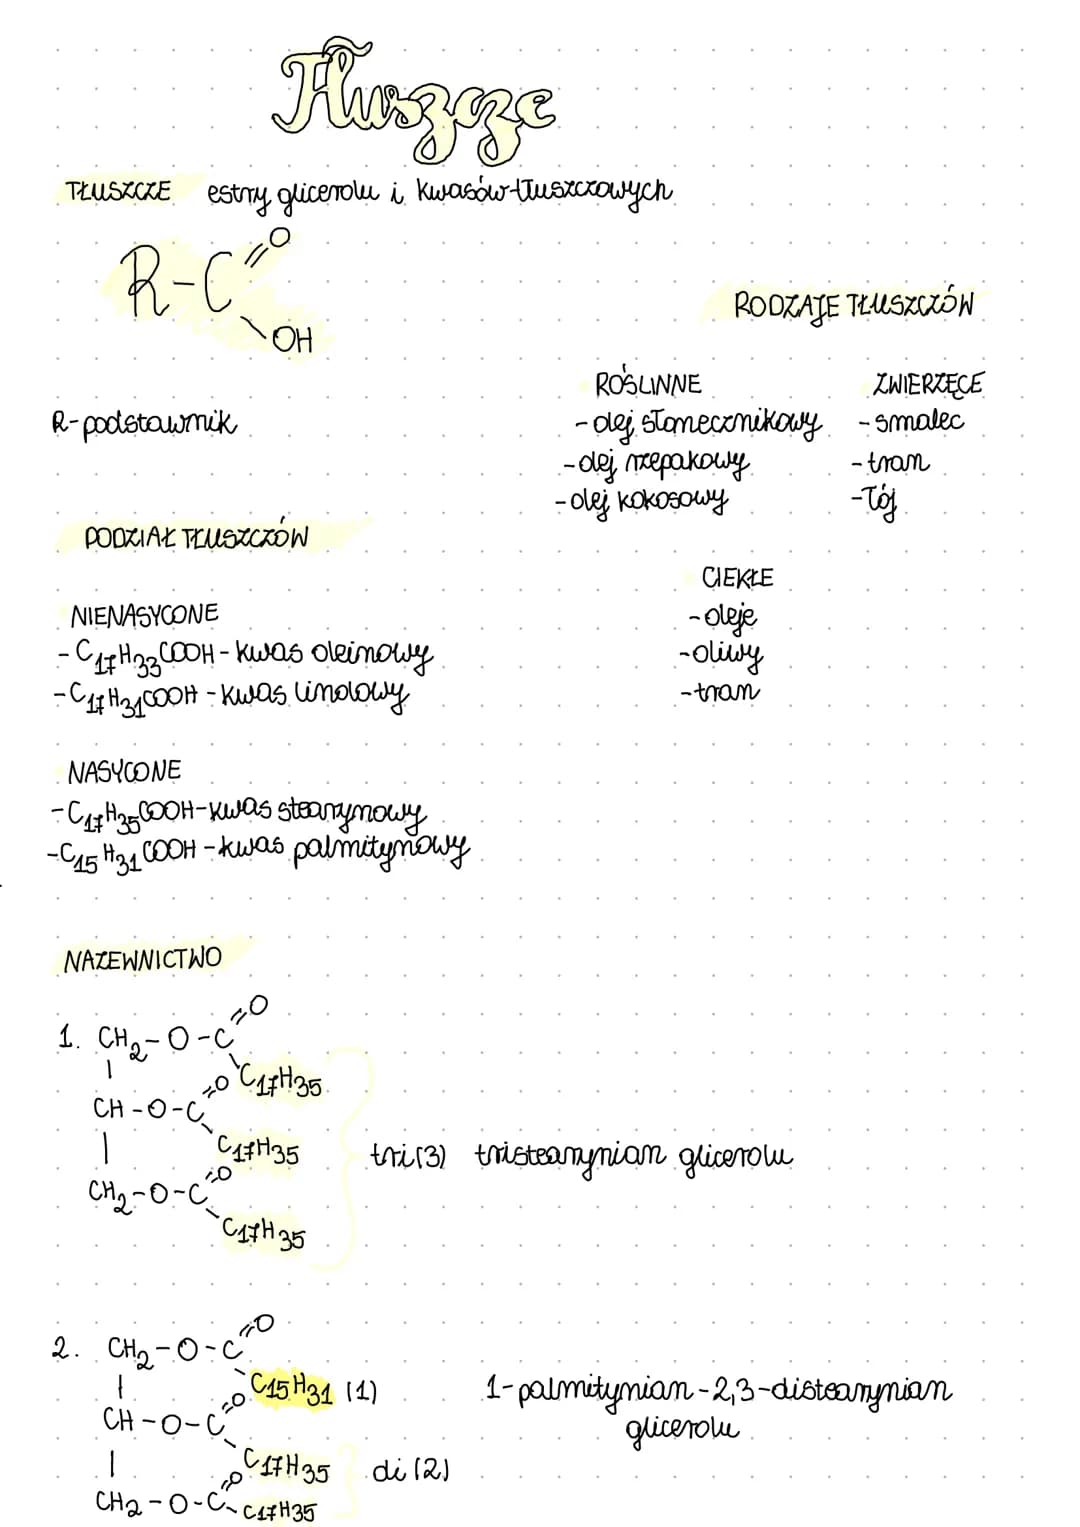 Tłuszcze
TŁUSZCZE estry glicerolu i kwasów tłuszczowych
R-C=O
OH
R-podstawnik
RODZAJE TŁUSZCZÓW
ROŚLINNE
- olej słonecznikowy
- olej rzepakowy
- olej kokosowy
ZWIERZĘCE
- smalec
- tran
- łój
CIEKŁE
- oleje
- oliwy
- tran
PODZIAŁ TŁUSZCZÓW
NIENASYCONE
- C17H33COOH - kwas oleinowy
- C17H31COOH - kwas linolowy
NASYCONE
- C17H35COOH - kwas stearynowy
- C15H31COOH - kwas palmitynowy
NAZEWNICTWO
1. CH2-O-C=O
C17H35
CH-O-C=O
C17H35
CH2-O-C=O
C17H35
tri(3) tristearynian glicerolu
2. CH2-O-C=O
C15H31 (1)
CH-O-C=O
C17H35
CH2-O-C=O
C17H35
di(2)
1-palmitynian-2,3-distearynian
glicerolu